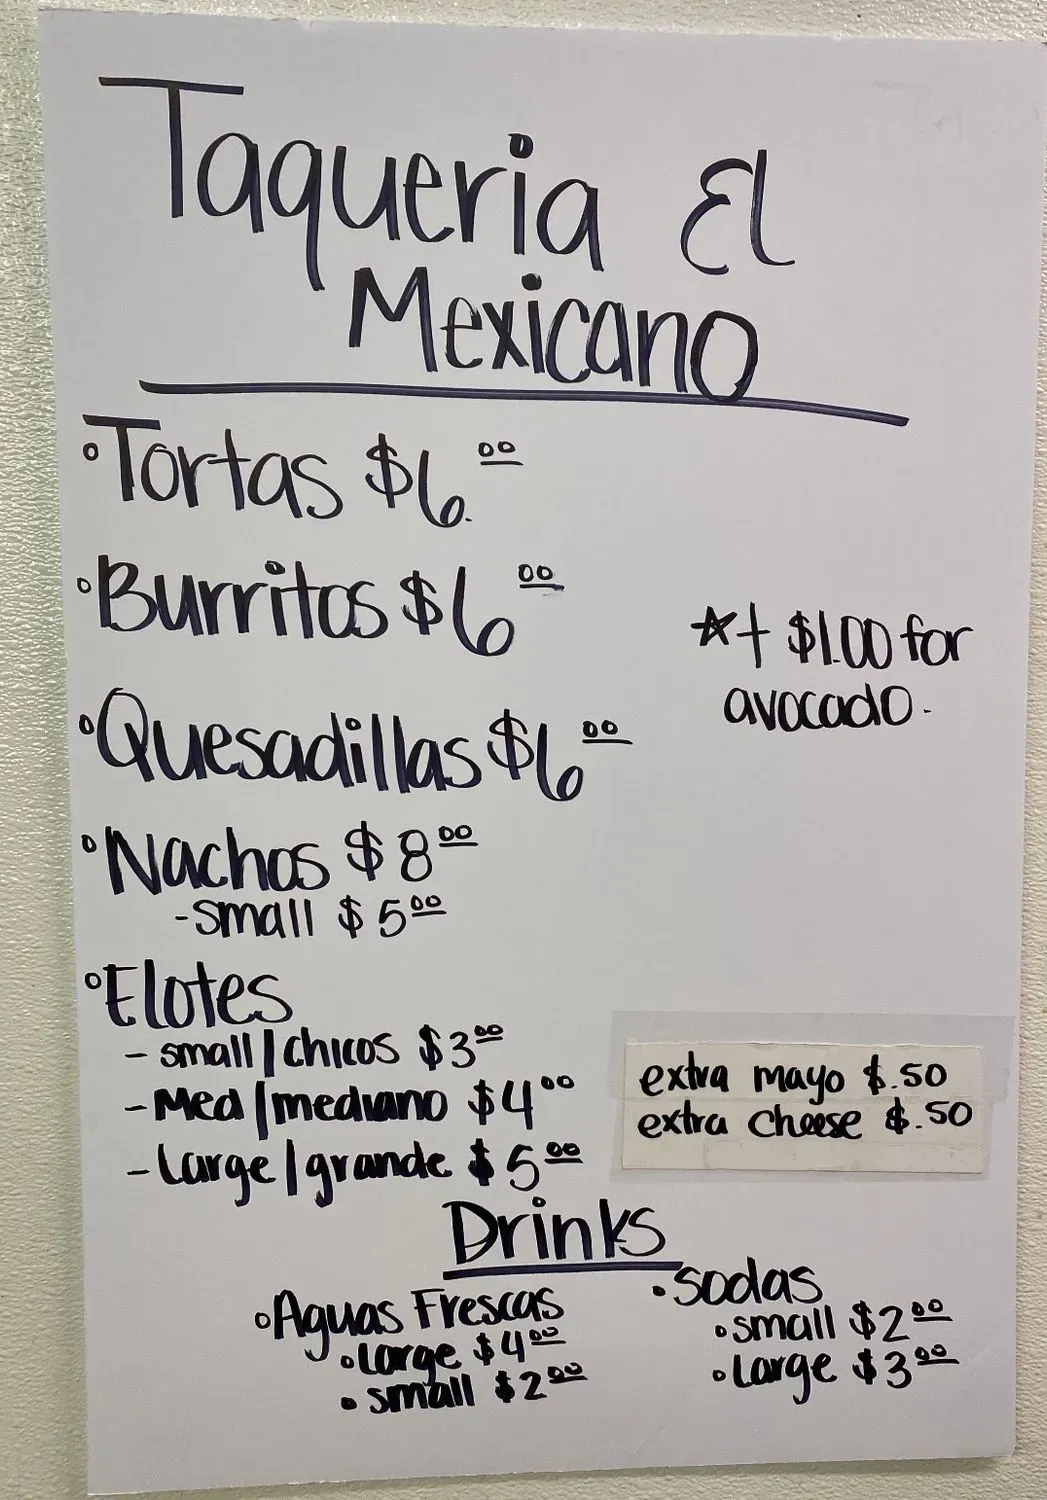 Taqueria El
Mexicano
Tortas $6.00
Burritos $6 00
*+ $1.00 for
avocado.
Quesadillas $6 00
Nachos $8 00
- small $5 00
Elotes
- small/chicos $3 00
- Med/mediano $4 00
- Large/grande $5 00
extra mayo $.50
extra cheese $.50
Drinks
Aguas Frescas
Large $4 00
small $2 00
sodas
small $2 00
Large $3 00